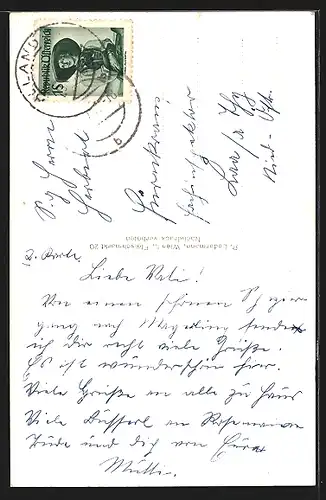 ALLAND
REPUBLIK ÖSTERREICH
1S
S. g. Herrn
Herbert
Laa/a
Nied.-Öst.
P. Ledermann, Wien I., Fleischmarkt 20
Nachdruck verboten
Liebe
Von einem schönen Spazier
gang nach Mayerling sende
ich dir recht viele Grüße.
Es ist wunderschön hier.
Viele Grüße an alle zu Haus
Viele Busserl an Rosemarie
und dich von Eurer
Mutti.